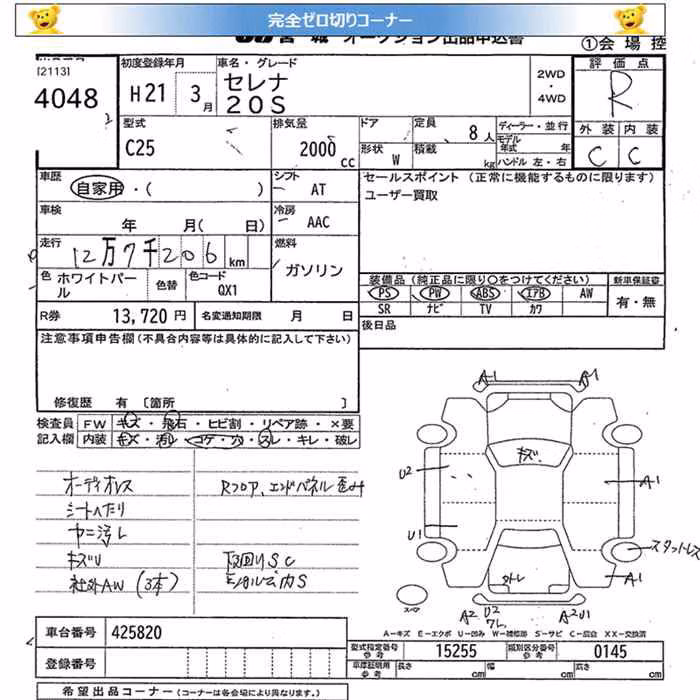 完全ゼロ切りコーナー
JU 宮城 オークション出品申込書
①会場控
[2113]
4048
初度登録年月
H21 3月
車名・グレード
セレナ
20S
2WD
・
4WD
評価点
R
外装 内装
C C
型式
C25
排気量
2000 cc
ドア
形状 W
定員 8人
積載 kg
ディーラー・並行
モデル年式 年
ハンドル 左・右
車歴
自家用・( )
シフト
AT
セールスポイント (正常に機能するものに限ります)
ユーザー買取
車検
年 月( 日)
冷房
AAC
走行
12万7千206 km
燃料
ガソリン
色 ホワイトパール
色替
色コード
QX1
装備品 (純正品に限り〇をつけてください)
新車保証書
PS PW ABS エアB AW
有・無
SR ナビ TV カワ
R券 13,720 円
名変通知期限 月 日
後日品
注意事項申告欄 (不具合内容等は具体的に記入して下さい)
修復歴 有 〔箇所 〕
検査員記入欄
FW キズ・飛石・ヒビ割・リペア跡・×要
内装 キズ・汚レ・コゲ・穴・スレ・キレ・破レ
オーディオレス
シートヘたり
ヤニ汚レ
キズU
社外AW (3本)
Rフロア、エンドパネル歪み
下回りSC
Eンルーム内S
A1 A1
キズ
U2
A1
U1
スタットレス
A1
カトレ
スペア
A2 U2 ワレ A2 U1
A−キズ E−エクボ U−凹み W−補修跡 S−サビ C−腐食 XX−交換済
車台番号 425820
型式指定番号 参考 15255
類別区分番号 参考 0145
登録番号
車庫証明用 参考
長さ cm 幅 cm 高さ cm
希望出品コーナー (コーナーは各会場により異なります。)